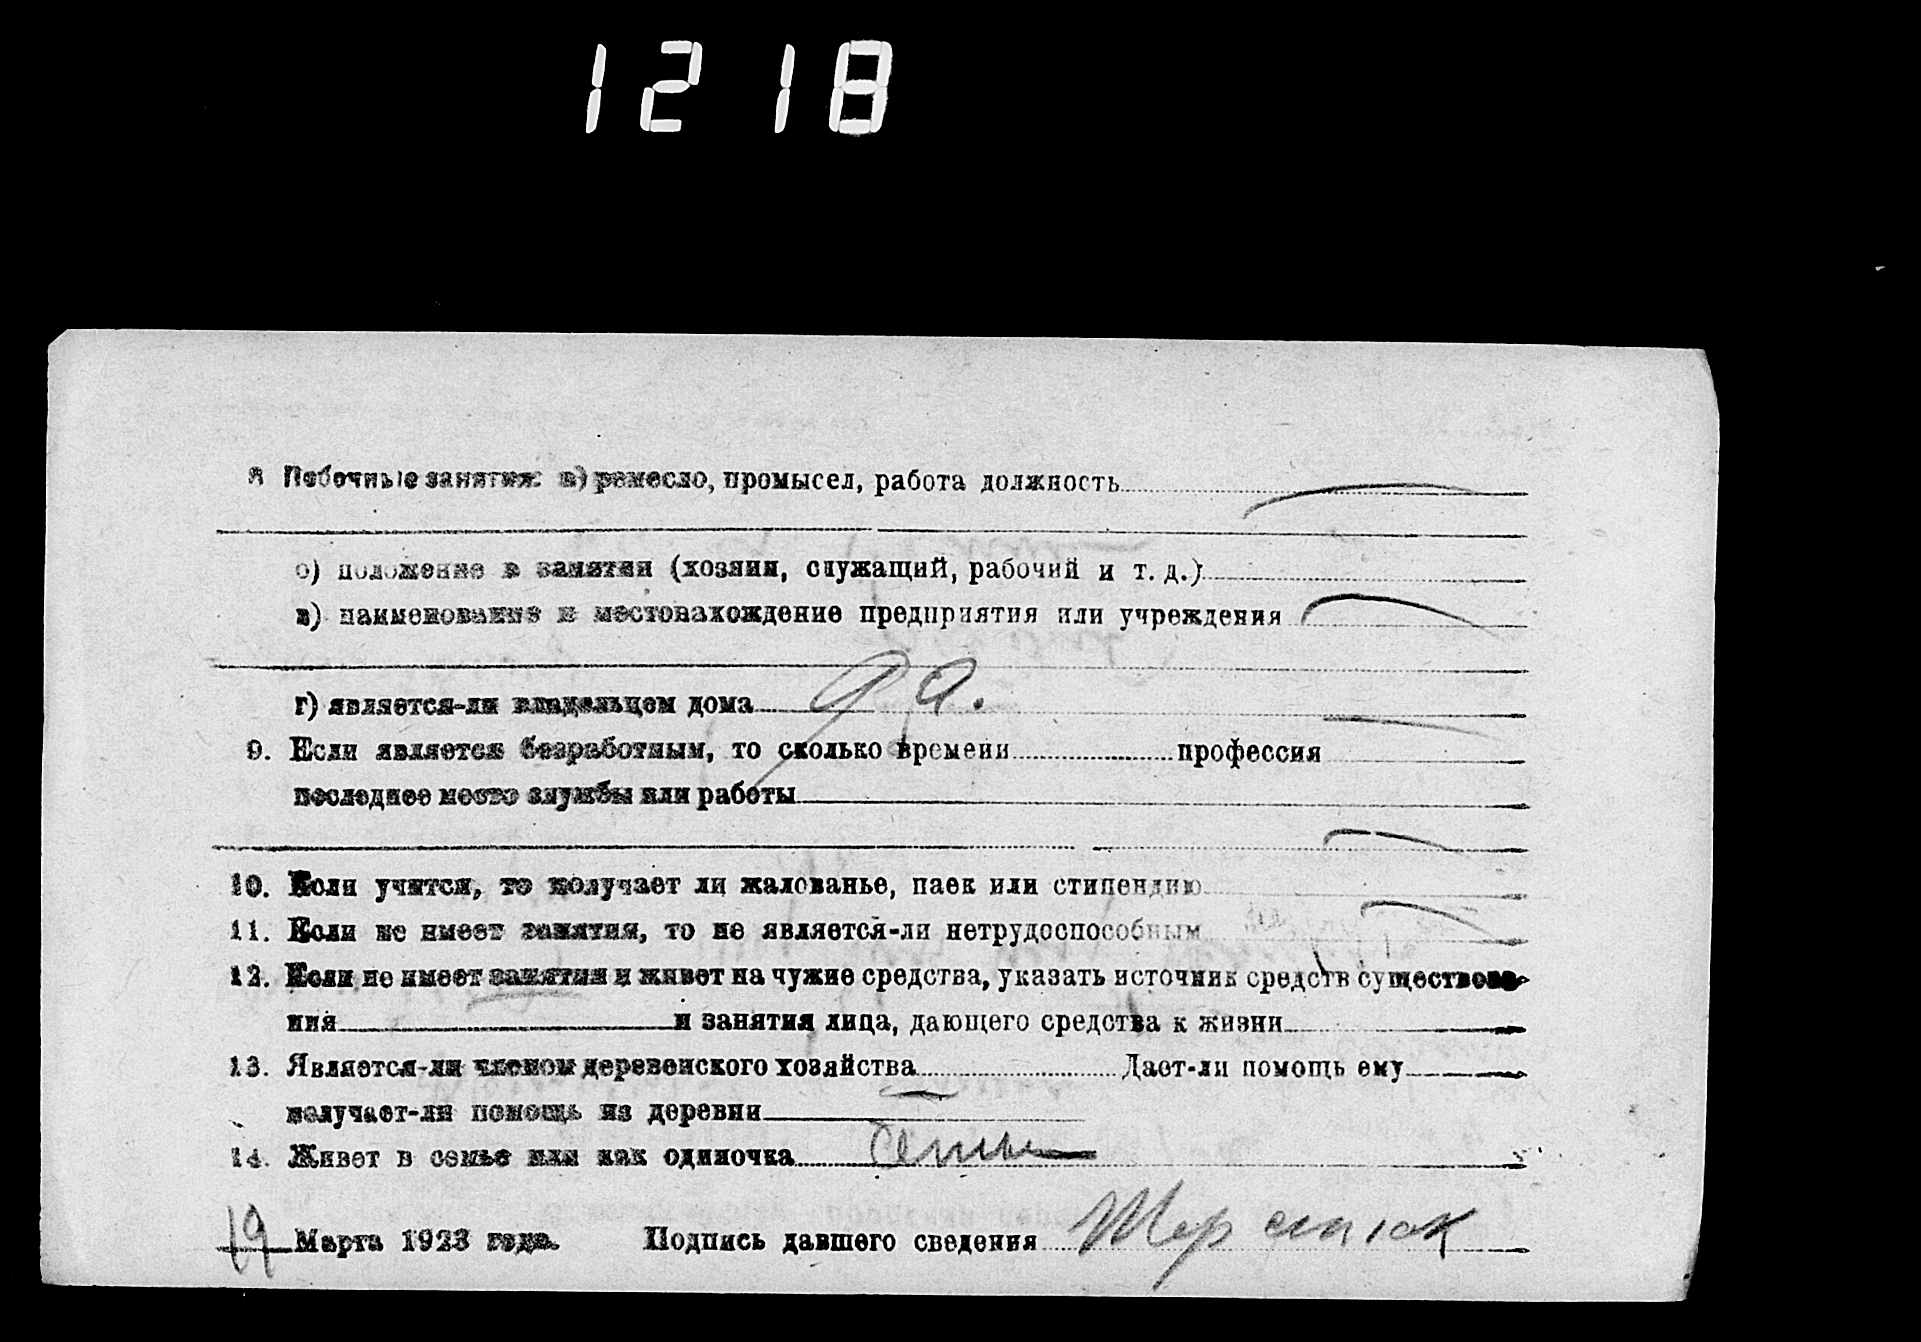 1218
8 Побочные занятия: а) ремесло, промысел, работа должность
б) положение в занятии (хозяин, служащий, рабочий и т. д.)
в) наименование и местонахождение предприятия или учреждения
г) является-ли владельцем дома да.
9. Если является безработным, то сколько времени профессия
последнее место службы или работы
10. Если учится, то получает ли жалованье, паек или стипендию
11. Если не имеет занятия, то не является-ли нетрудоспособным
12. Если не имеет занятия и живет на чужие средства, указать источник средств существова-
ния и занятия лица, дающего средства к жизни
13. Является-ли членом деревенского хозяйства Дает-ли помощь ему
получает-ли помощь из деревни
14. Живет в семье или как одиночка
19 Марта 1923 года. Подпись давшего сведения